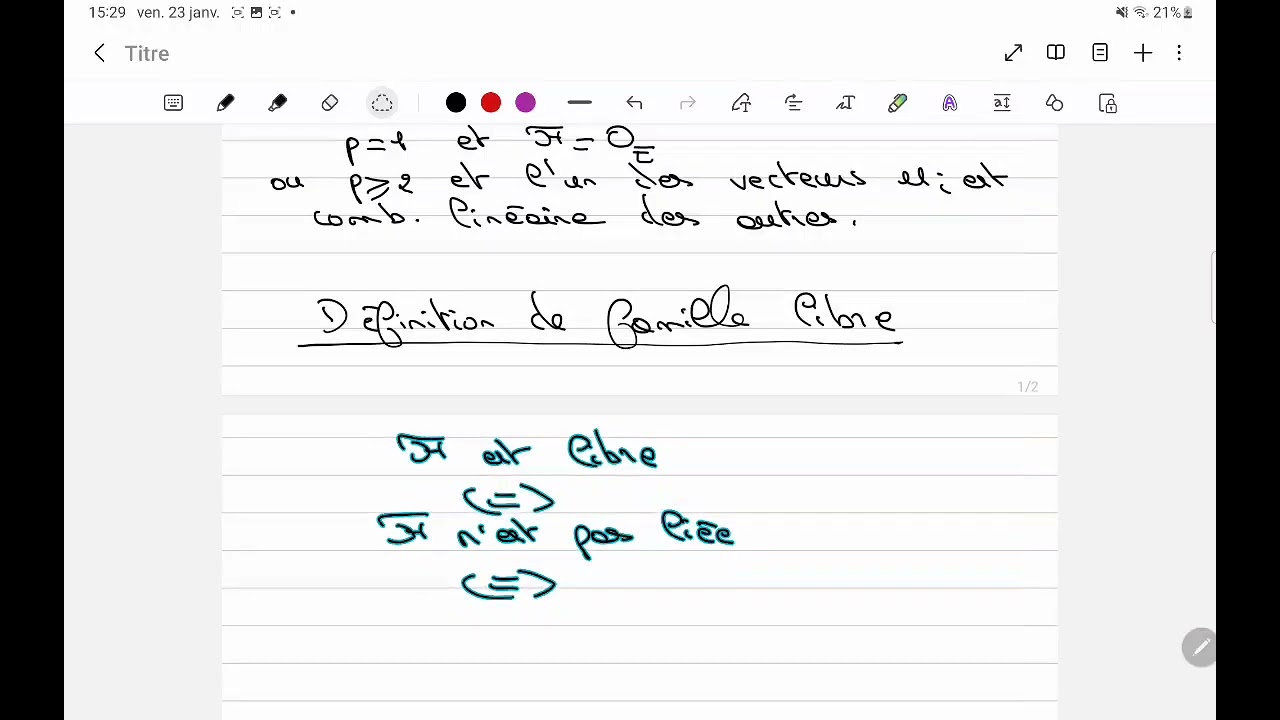 15:29 ven. 23 janv.
21%
Titre
p=1 et ℱ = 0_E
ou p⩾2 et l'un des vecteurs u_i est
comb. linéaire des autres.
Définition de famille libre
1/2
ℱ est libre
<=>
ℱ n'est pas liée
<=>